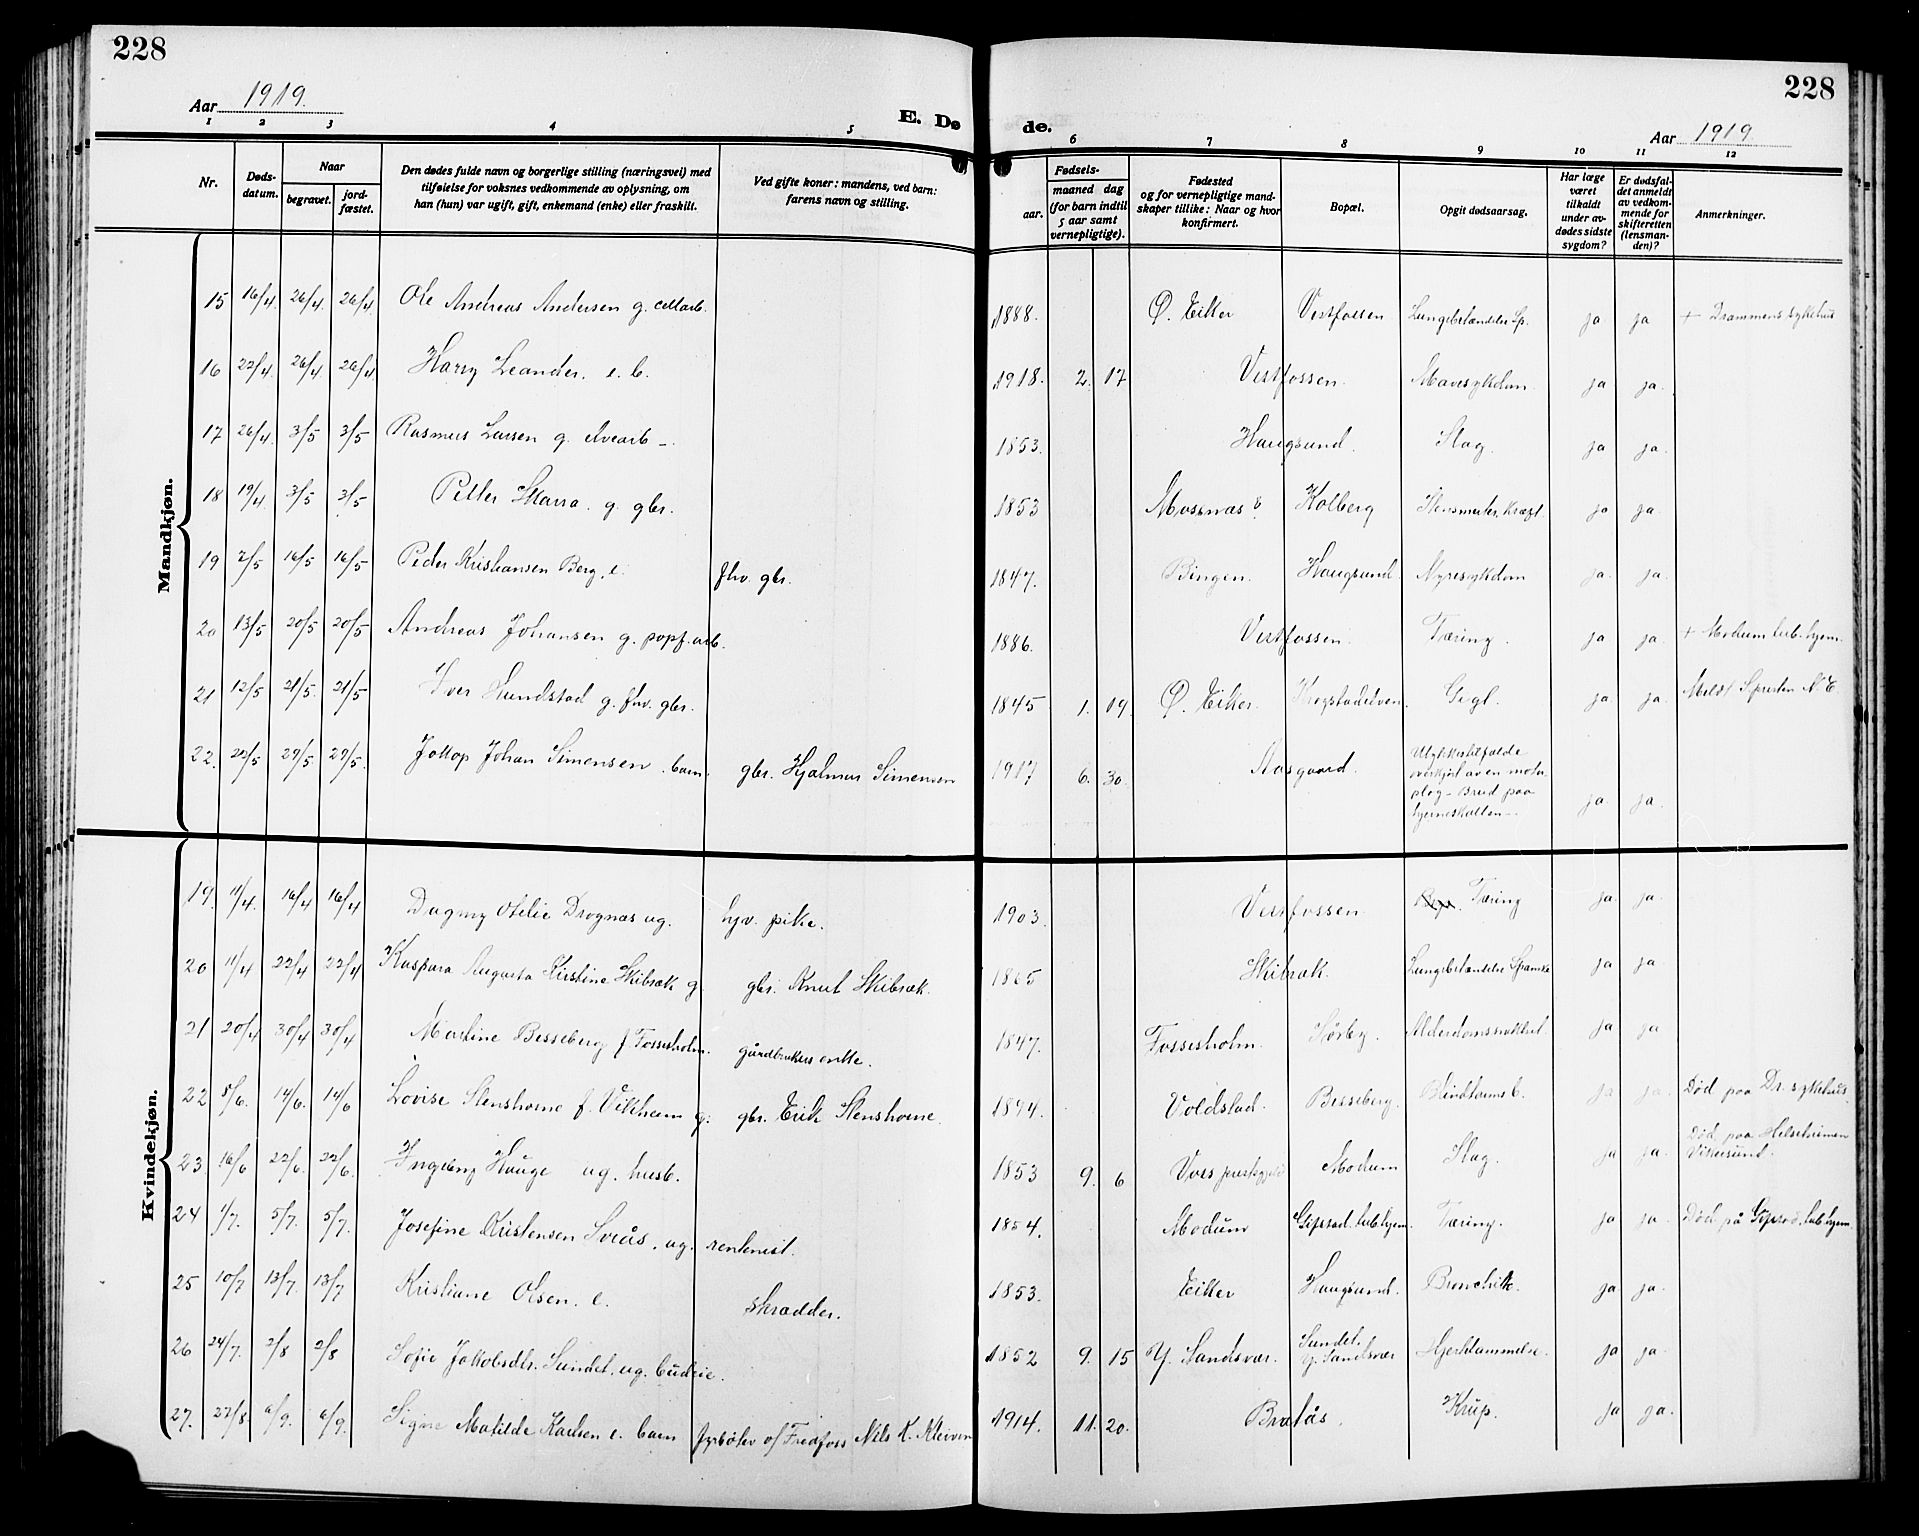 228
228
Aar 1919.
E. Dø de.
Aar 1919
1 2 3 4 5 6 7 8 9 10 11 12
Nr.
Døds-datum.
Naar
begravet.
jord-fæstet.
Den dødes fulde navn og borgerlige stilling (næringsvei) med
tilføielse for voksnes vedkommende av oplysning, om
han (hun) var ugift, gift, enkemand (enke) eller fraskilt.
Ved gifte koner: mandens, ved barn:
farens navn og stilling.
Fødsels-
aar.
maaned dag
(for barn indtil
5 aar samt
vernepligtige).
Fødested
og for vernepligtige mand-
skaper tillike: Naar og hvor
konfirmert.
Bopæl.
Opgit dødsaarsag.
Har læge
været
tilkaldt
under av-
dødes sidste
sygdom?
Er dødsfal-
det anmeldt
av vedkom-
mende for
skifteretten
(lensman-
den)?
Anmerkninger.
Mandkjøn.
15 16/4. 26/4. 26/4 Ole Andreas Andersen g. cellarb. 1888. Ø. Eiker Vestfossen Lungebetændelse Sp. ja ja + Drammens sykehus
16 22/4. 26/4 26/4 Harry Leander. e. b. 1918. 2. 17 Vestfossen. Mavesykdom ja ja.
17 26/4. 3/5 3/5 Rasmus Larsen g. elvearb - . 1853. Haugsund. Slag. ja ja.
18 19/4 3/5 3/5 Petter Skarra. g. gbr. 1853 Mossnæs Kolberg ja ja.
19 7/5 16/5 16/5 Peder Kristiansen Berg. e. fhv. gbr. 1847. Bingen. Haugsund. Nyresykdom ja. ja.
20 13/5 20/5 20/5 Andreas Johansen g. papf. arb. 1886. Vestfossen. Tæring. ja ja. + Modum tub. hjem.
21 12/5 21/5. 21/5 Iver Lundstad g. fhv. gbr. 1845 1. 19. Ø. Eiker. Krogstadelven. Gigt. ja. ja. Meldt Spresten N. E.
22. 22/5 27/5 27/5. Jakop Johan Simensen. barn. gbr. Hjalmar Simensen 1917 6. 30. Aasgaard. Ulykkestilfælde
overkjørt av en motor-
plog - Brud paa
hjerneskallen -. ja ja.
Kvindekjøn.
19. 11/4. 16/4 16/4 Dagny Otelie Drognæs ug. hjv. pike. 1903. Vestfossen. Tæring ja. ja.
20 11/4 22/4 22/4 Kaspara Augusta Kirstine Skibræk g. gbr. Knut Skibræk. 1865 Skibræk. Lungebetændelse Spanske ja ja.
21 20/4 30/4 30/4 Martine Besseberg f Fossesholm. gårdbrukers enke. 1847. Fossesholm. Sørby. ja ja
22 5/6. 14/6. 14/6 Lovise Stenshorne f. Vikheim g. gbr. Erik Stenshorne. 1894. Voldstad. Besseberg. Blindtarmsb. ja ja. Død paa Dr. sykehus.
23 16/6 22/6. 22/6. Ingeborg Hauge ug. husb. 1853 9. 6 Voss Modum Slag. ja ja. Død paa Helseheimen
Vikersund.
24 1/7. 5/7. 5/7. Josefine Kristensen Sveås. ug. rentenist. 1854. Modum Gipsrud. tub. hjem. Tæring. ja ja. Død på Gipsrud. tub. hjem.
25 10/7 13/7. 13/7 Kristiane Olsen. e. skrædder. 1853. Eiker Haugsund. Bronchitt. ja ja.
26 24/7. 2/8 2/8 Sofie Jakobsdtr. Sundet. ug. budeie. 1852 9. 15 Y. Sandsvær. Sundet.
Y. Sandsvær Hjertelammelse. ja ja.
27. 27/8 6/9. 6/9. Signe Matilde Karlsen e. barn fyrbøter v/ Fredfoss Nils K. Kleiven 1914. 11. 20. Brælås. Krup. ja ja.